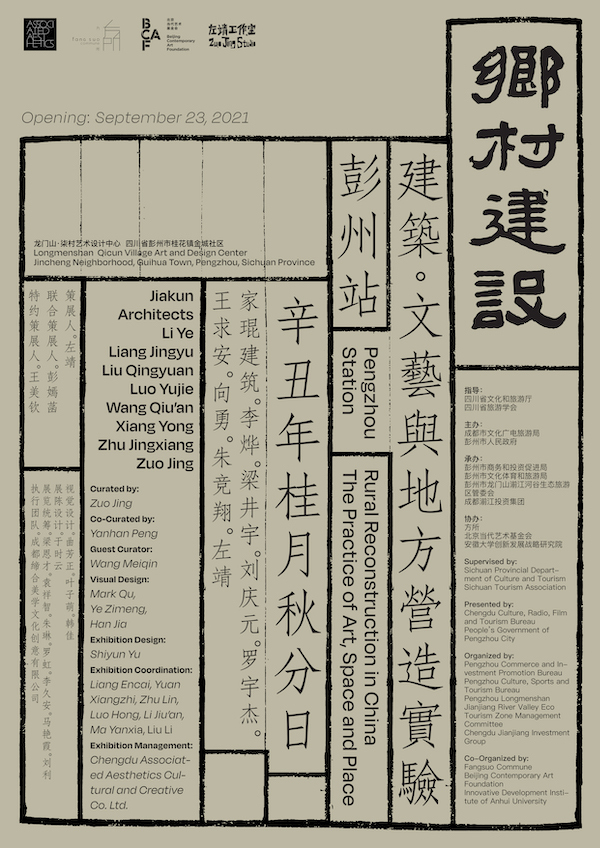 ASSOCI
ATED
AESTH
ETICS
Fangsuo
方所
BCAF
北京
当代艺术
基金会
Beijing
Contemporary
Art
Foundation
左靖工作室
Zuo Jing Studio
Opening: September 23, 2021
鄉村建設
建築。文藝與地方營造實驗
彭州站
Pengzhou
Station
Rural Reconstruction in China
The Practice of Art, Space and Place
龙门山·柒村艺术设计中心 四川省彭州市桂花镇金城社区
Longmenshan Qicun Village Art and Design Center
Jincheng Neighborhood, Guihua Town, Pengzhou, Sichuan Province
辛丑年桂月秋分日
家琨建筑。李烨。梁井宇。刘庆元。罗宇杰。
王求安。向勇。朱竞翔。左靖
Jiakun
Architects
Li Ye
Liang Jingyu
Liu Qingyuan
Luo Yujie
Wang Qiu'an
Xiang Yong
Zhu Jingxiang
Zuo Jing
策展人。左靖
联合策展人。彭嫣菡
特约策展人。王美钦
Curated by:
Zuo Jing
Co-Curated by:
Yanhan Peng
Guest Curator:
Wang Meiqin
Visual Design:
Mark Qu,
Ye Zimeng,
Han Jia
Exhibition Design:
Shiyun Yu
Exhibition Coordination:
Liang Encai, Yuan
Xiangzhi, Zhu Lin,
Luo Hong, Li Jiu'an,
Ma Yanxia, Liu Li
Exhibition Management:
Chengdu Associat-
ed Aesthetics Cul-
tural and Creative
Co. Ltd.
视觉设计。曲芳正。叶子萌。韩佳
展陈设计。于时云
展览统筹。梁恩才。袁祥智。朱琳。罗虹。李久安。马艳霞。刘利
执行团队。成都缔合美学文化创意有限公司
指导：
四川省文化和旅游厅
四川省旅游学会
主办：
成都市文化广电旅游局
彭州市人民政府
承办：
彭州市商务和投资促进局
彭州市文化体育和旅游局
彭州市龙门山湔江河谷生态旅游
区管委会
成都湔江投资集团
协办：
方所
北京当代艺术基金会
安徽大学创新发展战略研究院
Supervised by:
Sichuan Provincial Depart-
ment of Culture and Tourism
Sichuan Tourism Association
Presented by:
Chengdu Culture, Radio, Film
and Tourism Bureau
People's Government of
Pengzhou City
Organized by:
Pengzhou Commerce and In-
vestment Promotion Bureau
Pengzhou Culture, Sports and
Tourism Bureau
Pengzhou Longmenshan
Jianjiang River Valley Eco
Tourism Zone Management
Committee
Chengdu Jianjiang Investment
Group
Co-Organized by:
Fangsuo Commune
Beijing Contemporary Art
Foundation
Innovative Development Insti-
tute of Anhui University